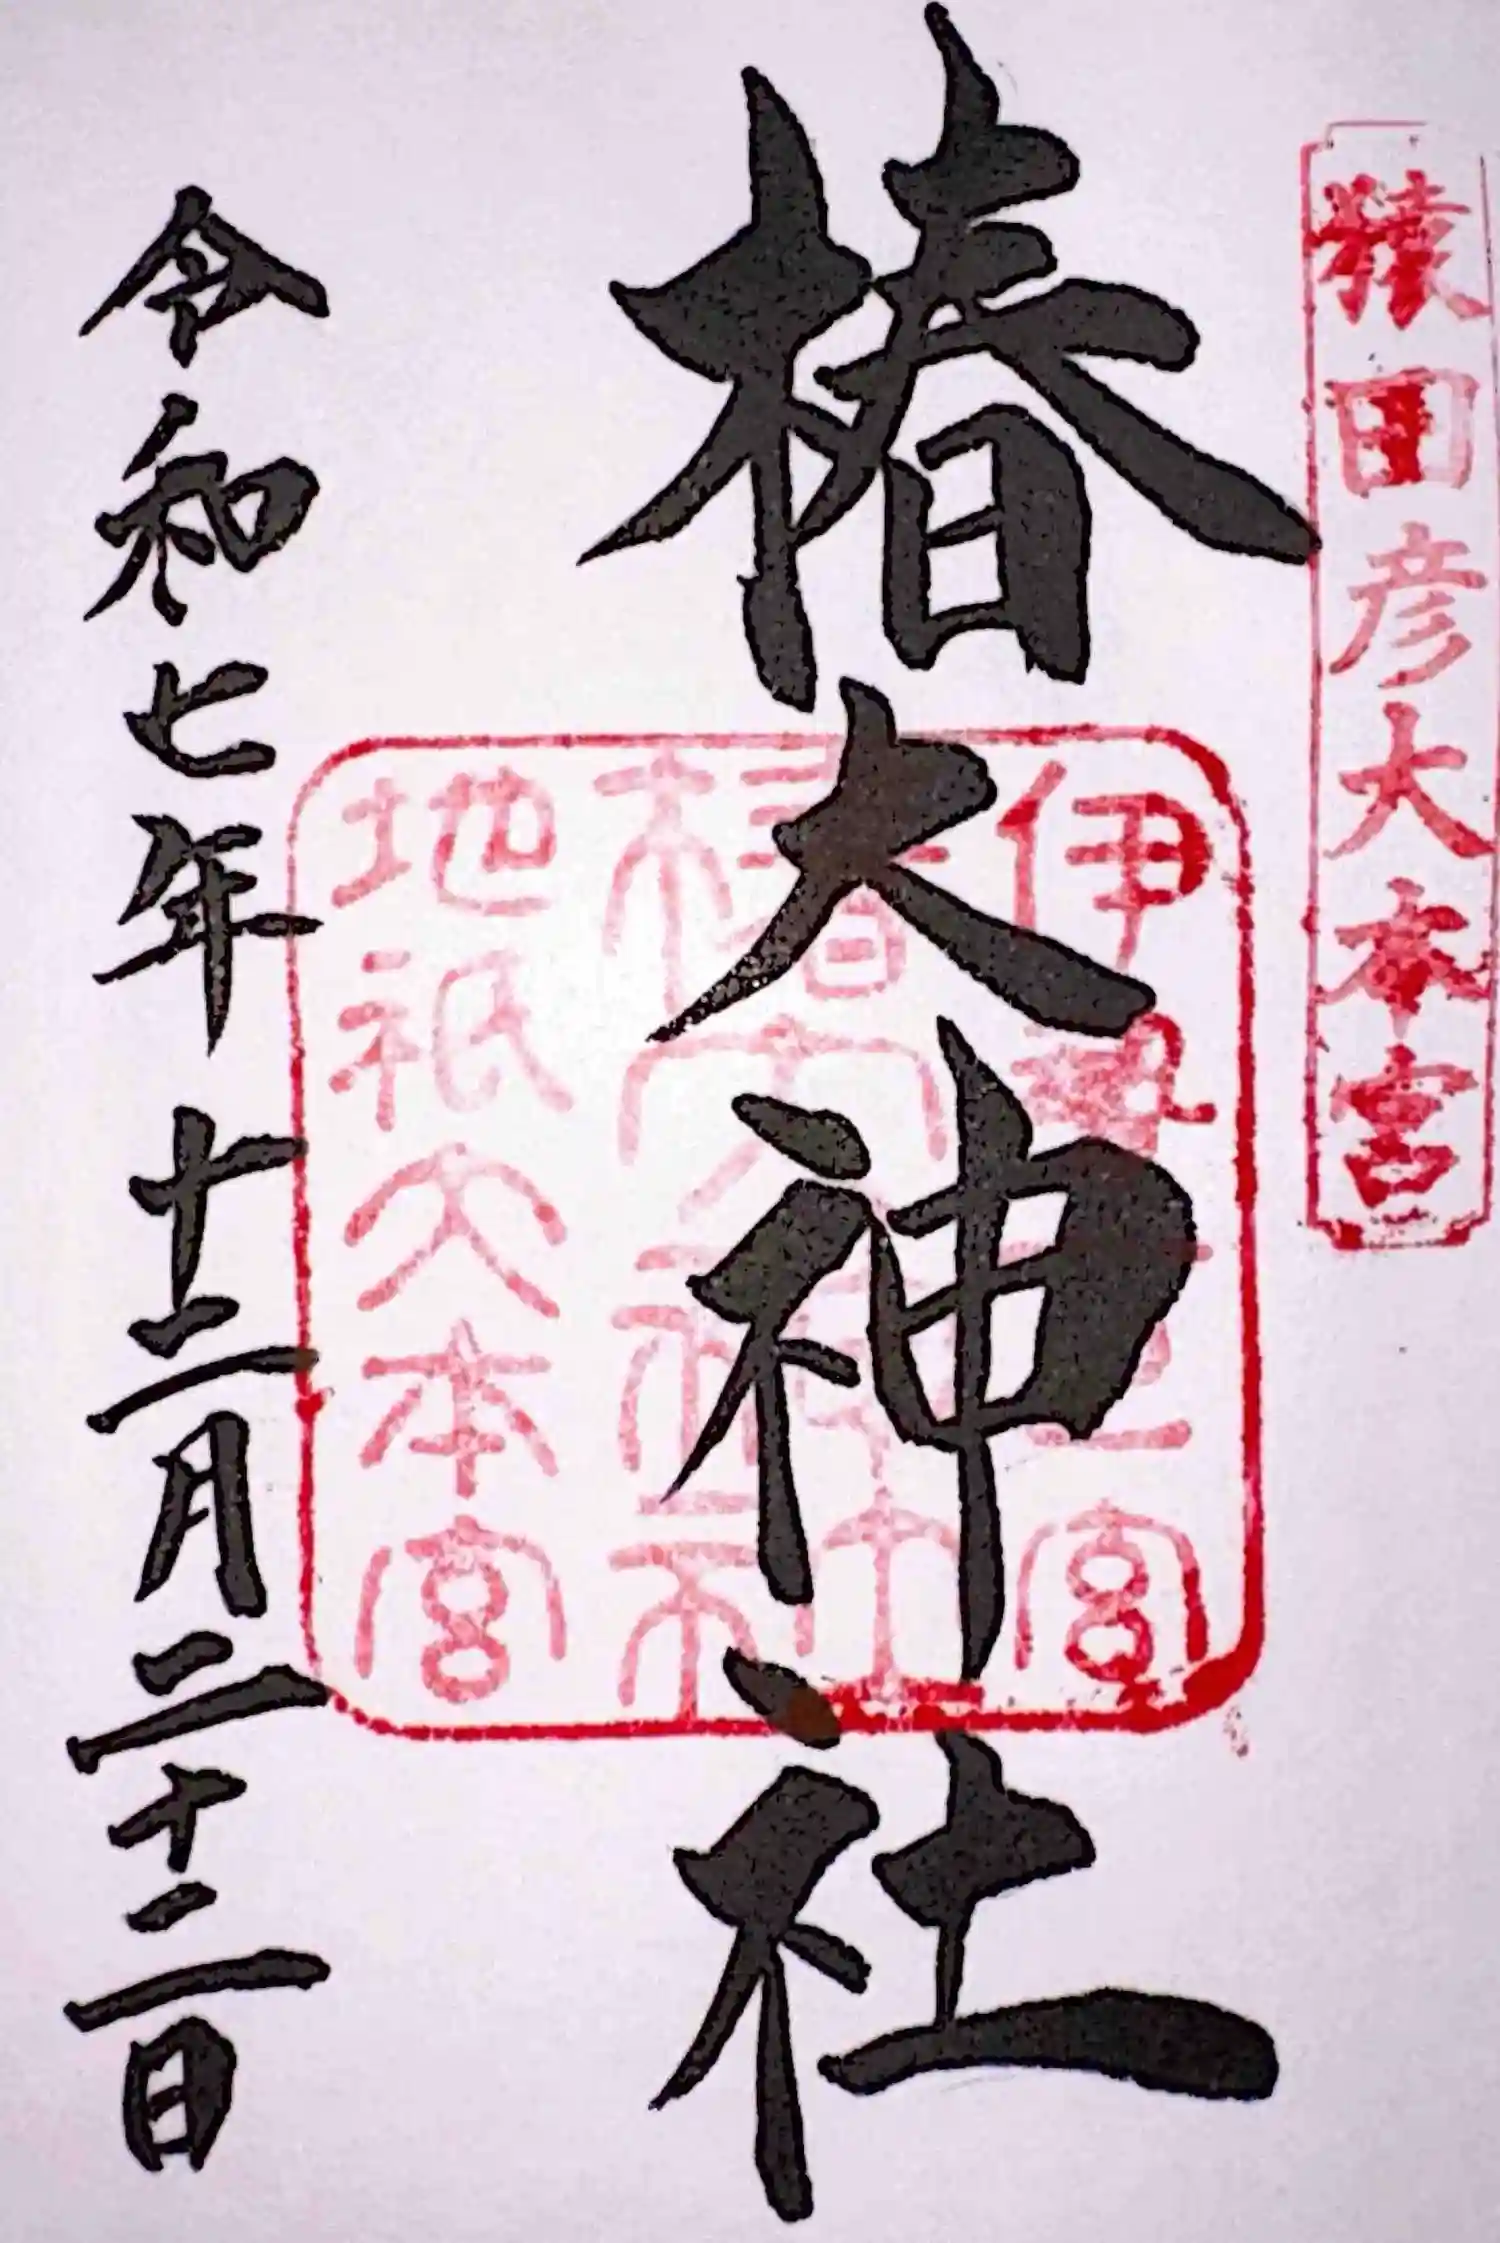 猿田彦大本宮
椿大神社
伊勢一之宮
椿大神社
地祇大本宮
令和七年十二月二十二日